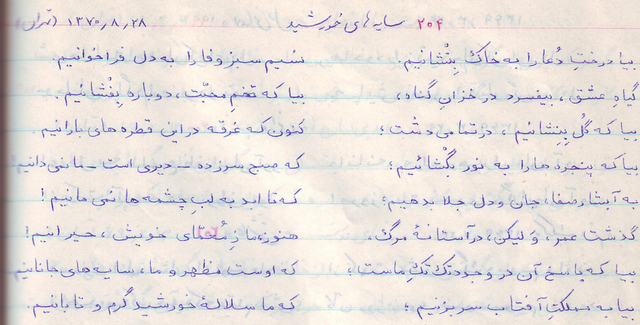 ۲۰۲ سایه‌های خورشید ۱۳۷۰٫۸٫۲۸ (تهران)
بیا درختِ دُعا را به خاک بِنْشانیم. نسیم سبز وفا را به دل فراخوانیم.
گیاهِ عشق، بیفسرد در خزانِ گناه، بیا که تخمِ محبّت، دوباره بِفْشانیم.
بیا که گُل بِنِشانیم، در تمامی دشت؛ کنون که غرقه در این قطره‌های بارانیم.
بیا که پنجره‌ها را به نور بگْشائیم؛ که صبح سرزده – دیری است – ما نمی‌دانیم.
به آبشارِ صفا، جان و دل جلا بدهیم؛ که تا ابد به لبِ چشمه‌ها نمی‌مانیم!
گذشت عمر، وَلیکن، در آستانهٔ مرگ، هنوز، ما زِ مُعمّای خویش، حیرانیم!
بیا که پاسخ آن در وجودِ تک تکِ ماست؛ که اوست مظهر و ما، سایه‌های جانانیم.
بیا به مملکتِ آفتاب سر بزنیم؛ که ما سلالهٔ خورشیدِ گرم و تابانیم.